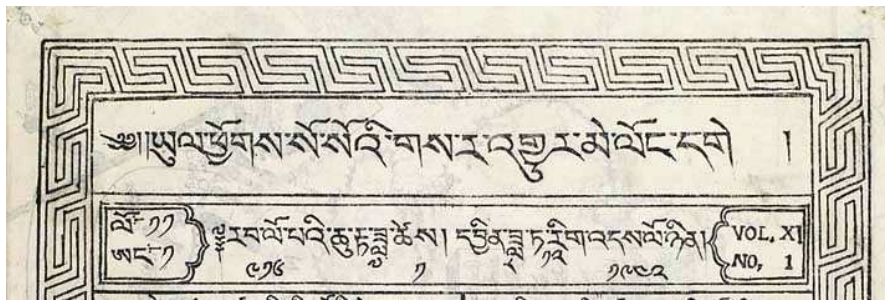 ༄༅།།ཡུལ་ཕྱོགས་སོ་སོའི་གསར་འགྱུར་མེ་ལོང་དགེ །
ལོ་༡༡
ཨང་༡
རབ་ལོ་པའི་ཆུ་རྟ་ཟླ་ཚེས། དབྱིན་ཟླ་ཏ་རིག་འདས་ལོ་ཉིན།
༩༡༦ ༡ ༡༢ ༡༩༤༢
VOL, XI
NO, 1